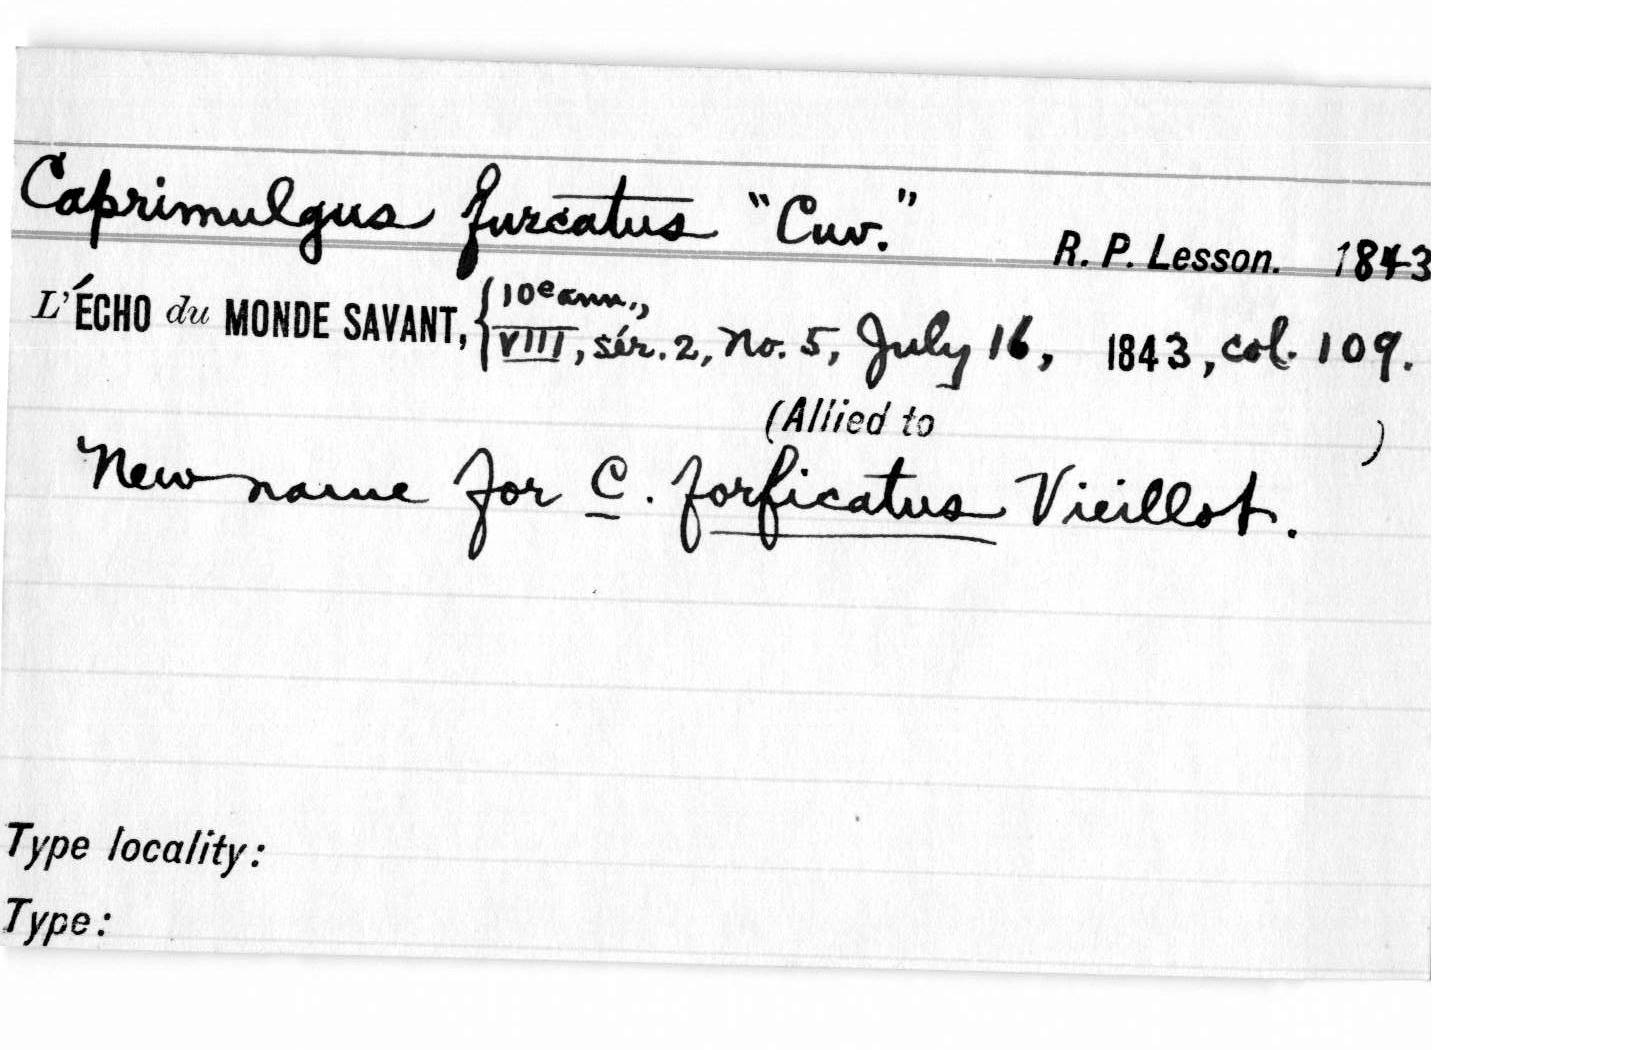 Caprimulgus furcatus "Cuv." R. P. Lesson. 1843
L'ÉCHO du MONDE SAVANT, { 10e ann.,
VIII, sér. 2, no. 5, July 16, 1843, col. 109.
(Allied to )
New name for C. forficatus Vieillot.
Type locality:
Type: